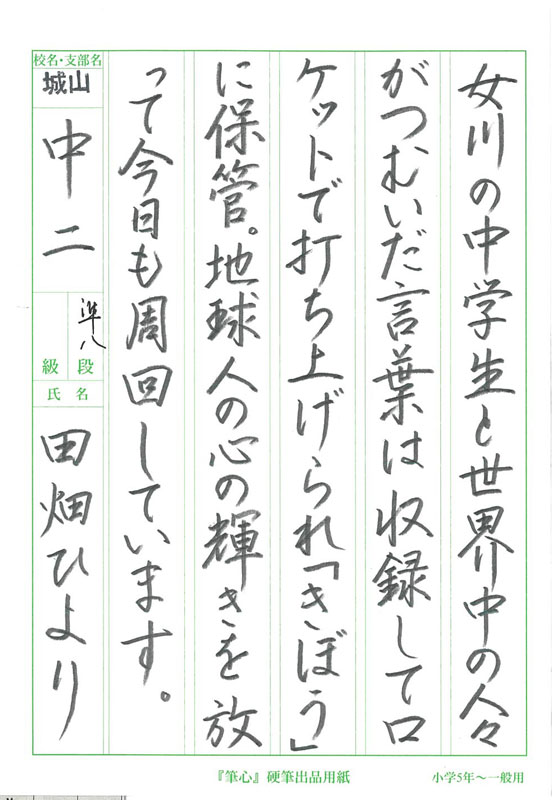 女川の中学生と世界中の人々
がつむいだ言葉は収録してロ
ケットで打ち上げられ「きぼう」
に保管。地球人の心の輝きを放
って今日も周回しています。
校名・支部名
城山
中二
準八
級段
氏名
田畑ひより
『筆心』硬筆出品用紙
小学5年～一般用